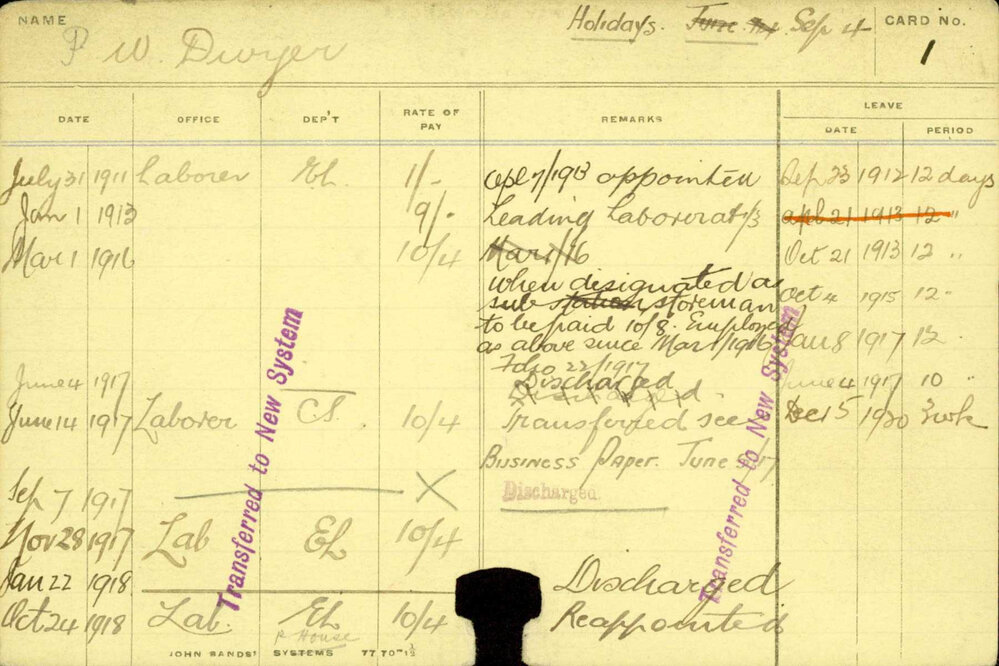 NAME
P W. Dwyer
Holidays. June Sep 4
CARD No.
1
DATE OFFICE DEP'T RATE OF PAY REMARKS LEAVE
DATE PERIOD
July 31 1911 Laborer El. 1/- Apl 7/1913 appointed Sep 23 1912 12 days
Jan 1 1913 9/- Leading Laborer at /3 Apl 21 1913 12 "
Mar 1 1916 10/4 Mar 1/16 Oct 21 1913 12 "
when designated as
sub station storeman Oct 4 1915 12 "
to be paid 10/8. Employed
as above since Mar 1/1916 Jan 8 1917 12
Folio 22/1917
June 4 1917 Discharged June 4 1917 10 "
Discharged
June 14 1917 Laborer C.S. 10/4 Transferred see Dec 15 1920 3 wk
Business Paper. June
Sep 7 1917 X Discharged.
Nov 28 1917 Lab El 10/4
Jan 22 1918 Discharged
Oct 24 1918 Lab. El 10/4 Reappointed
P House
Transferred to New System
Transferred to New System
JOHN SANDS' SYSTEMS